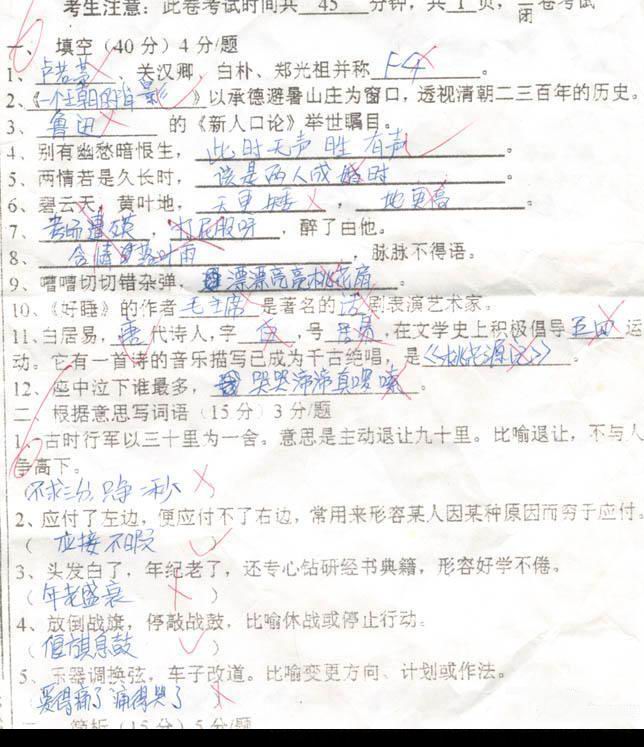 考生注意：此卷考试时间共 45 分钟，共 1 页，闭卷考试
一、填空（40分）4分/题
1、卢若葛，关汉卿，白朴、郑光祖并称 F4 。
2、《一个王朝的背影》以承德避暑山庄为窗口，透视清朝二三百年的历史。
3、鲁迅 的《新人口论》举世瞩目。
4、别有幽愁暗恨生，此时无声胜有声。
5、两情若是久长时，该是两人成婚时。
6、碧云天，黄叶地，天更矮，地更高。
7、考场遭殃，打屁股呀，醉了由他。
8、含情梁落叶雨，脉脉不得语。
9、嘈嘈切切错杂弹，漂漂亮亮桃花扇。
10、《好睡》的作者毛主席是著名的话剧表演艺术家。
11、白居易，唐代诗人，字白，号居易，在文学史上积极倡导五四运
动。它有一首诗的音乐描写已成为千古绝唱，是《桃花源记》。
12、座中泣下谁最多，哭哭啼啼真啰嗦。
二 根据意思写词语（15分）3分/题
1、古时行军以三十里为一舍。意思是主动退让九十里。比喻退让，不与人
争高下。
（不求三分，只争一秒）
2、应付了左边，便应付不了右边，常用来形容某人因某种原因而穷于应付。
（应接不暇）
3、头发白了，年纪老了，还专心钻研经书典籍，形容好学不倦。
（年老盛衰）
4、放倒战旗，停敲战鼓，比喻休战或停止行动。
（偃旗息鼓）
5、乐器调换弦，车子改道。比喻变更方向、计划或作法。
爱得痛了 痛得哭了
三 简析（15分）5分/题